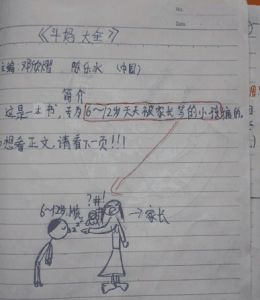 No.
Date
《斗妈大全》
主编:邓欣熠 陈乐水 (中国)
简介
这是一本书,专为6~12岁天天被家长骂的小孩编的,
想看正文,请看下一页!!!
?#!
6~12岁小孩
→家长